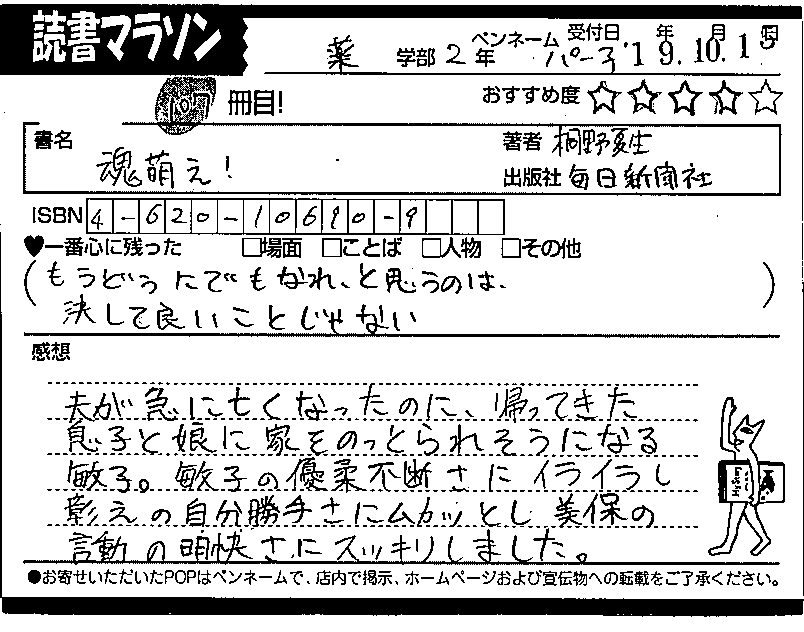 読書マラソン
薬 学部 2 年 ペンネーム パー子 受付日 '19年.10月.15日
107 冊目!
おすすめ度 ☆☆☆☆☆
書名 魂萌え!
著者 桐野夏生
出版社 毎日新聞社
ISBN 4-620-10690-9
♥一番心に残った □場面 □ことば □人物 □その他
(もうどうにでもなれ、と思うのは、
決して良いことじゃない)
感想
夫が急に亡くなったのに、帰ってきた
息子と娘に家をのっとられそうになる
敏子。敏子の優柔不断さにイライラし
彰之の自分勝手さにムカッとし美保の
言動の明快さにスッキリしました。
●お寄せいただいたPOPはペンネームで、店内で掲示、ホームページおよび宣伝物への転載をご了承ください。